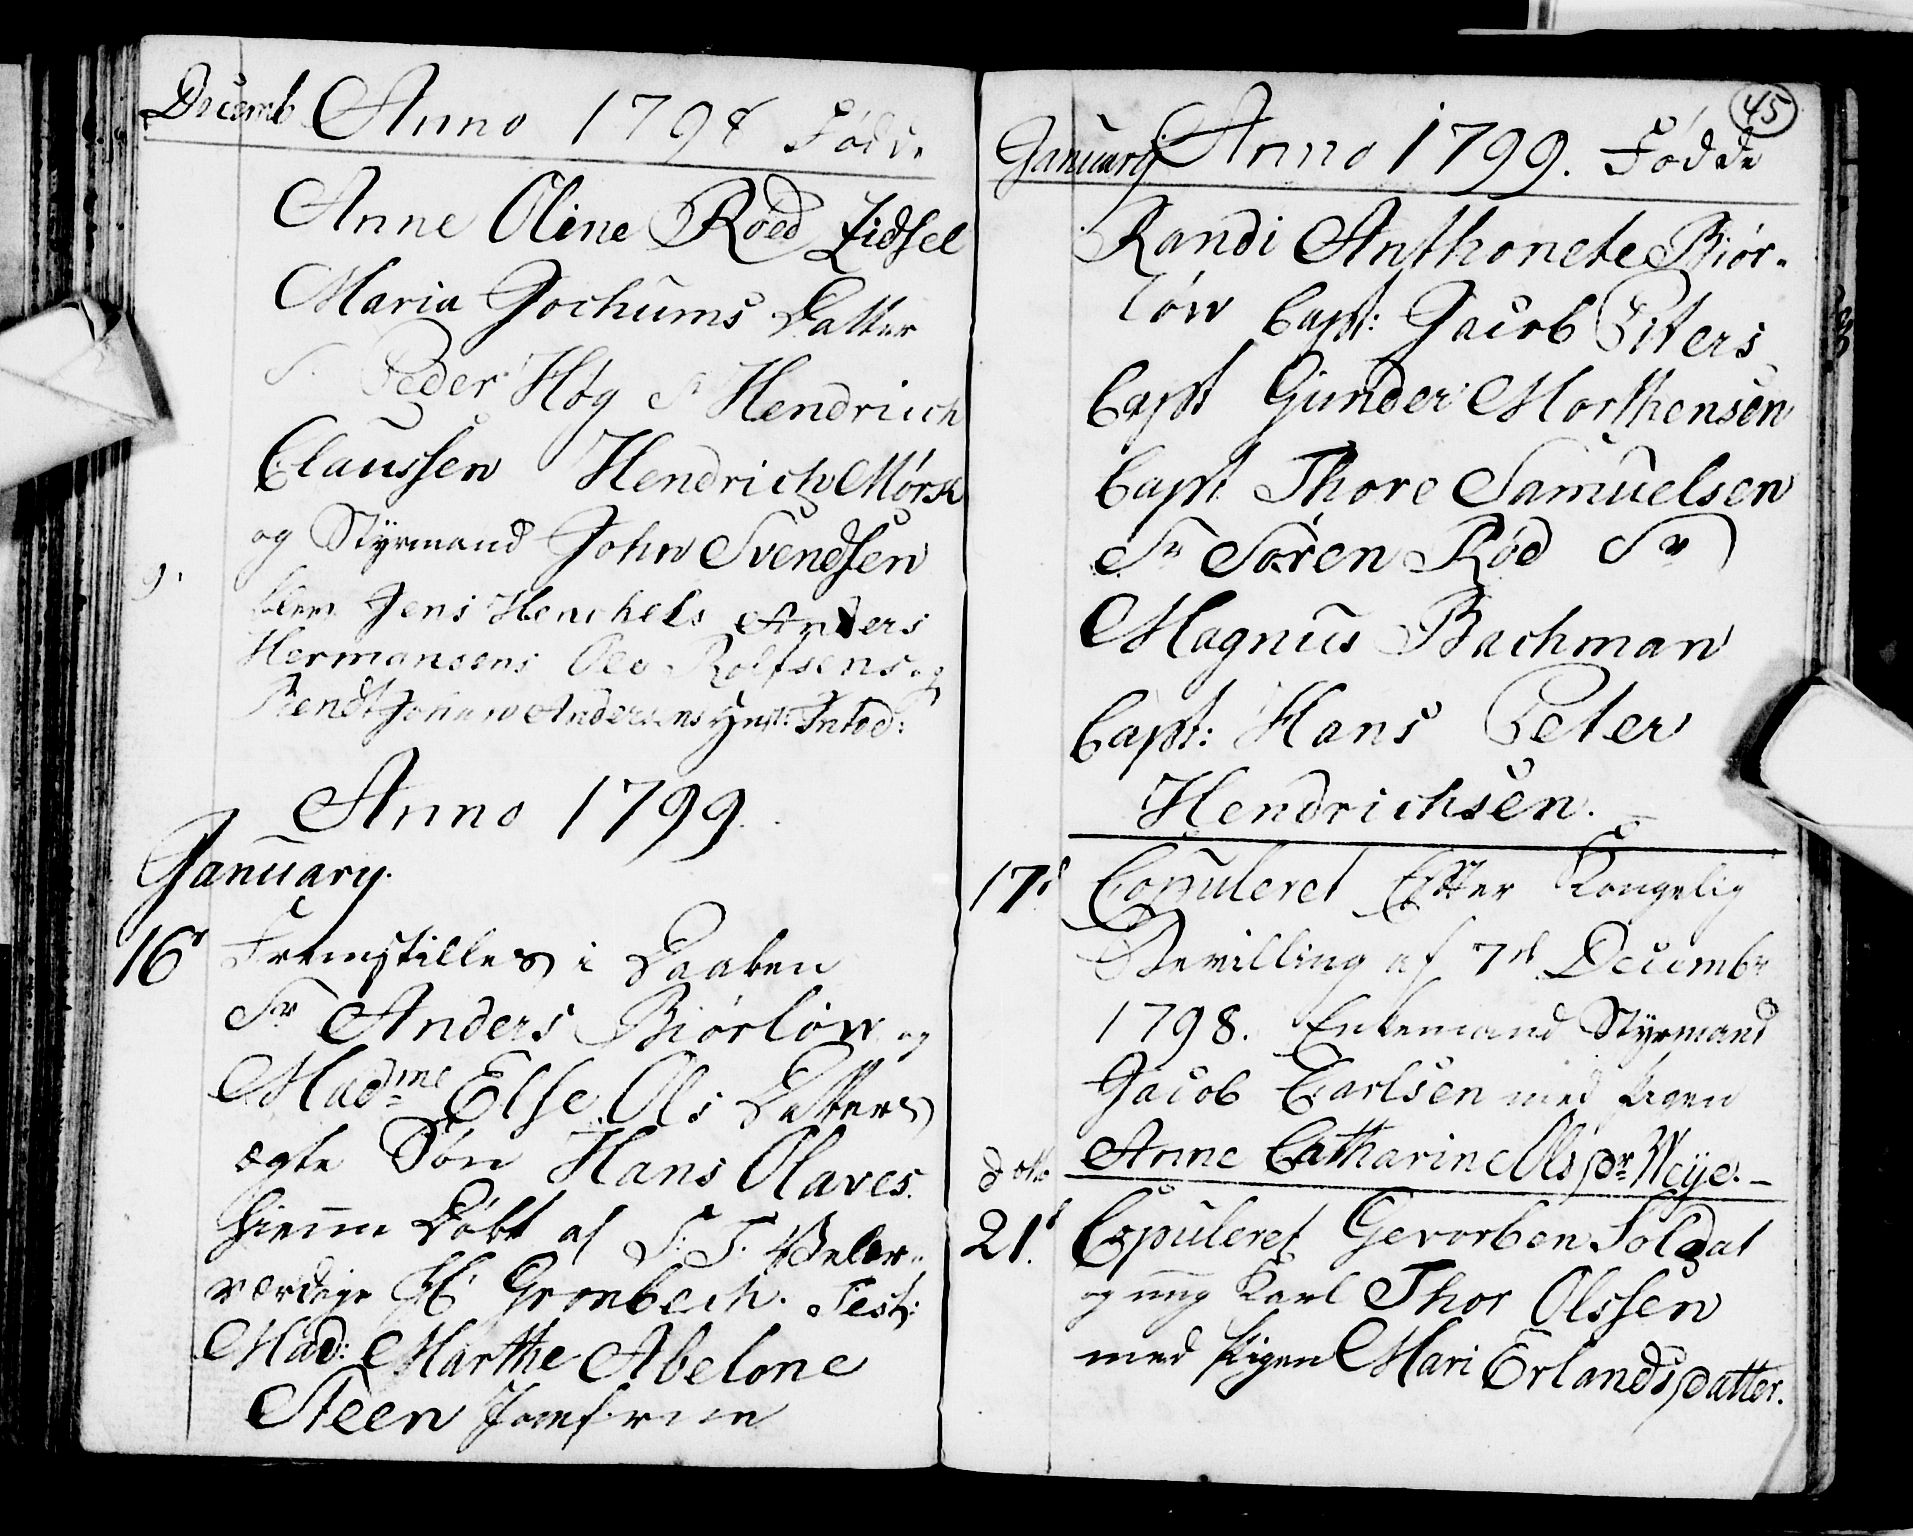 Decemb Anno 1798 Fødde
Anne Oline Roed Zidsel
Maria Jochums Datter
S. Peder Høg Sr Hendrich
Claussen Hendrich Mørsk
og Styrmand John Svendsen
9.
Jens Henchels Anders
Hermansens Ole Rolfsens og
Bendt Johan Andersens Hust: Introd:
Anno 1799.
January.
16d Fremstilles i Daaben
Sr Anders Biørløw og
Madme Else Ols Datters
ægte Søn Hans Olaves.
hiemme Døbt af S. T. Velær-
værdige Hr Grønbech. Test:
Mad: Marthe Abelone
Steen Jomfruerne
45
January Anno 1799. Fødde
Randi Anthonete Biør-
løw Capt: Jacob Peters
Capt Gunder Morthensen
Capt Thore Samuelsen
Sr Søren Rød Sr
Magnus Bachman
Capt: Hans Peter
Hendrichsen.
17d Copuleret Efter Kongelig
Bevilling af 7d Decembr
1798. Enkemand Styrmand
Jacob Carlsen med Pigen
Anne Catharine Ols Dr Weye.
dotto
21d Copuleret Gevorben Soldat
og ung Karl Thor Olssen
med Pigen Mari Erlandsdatter.